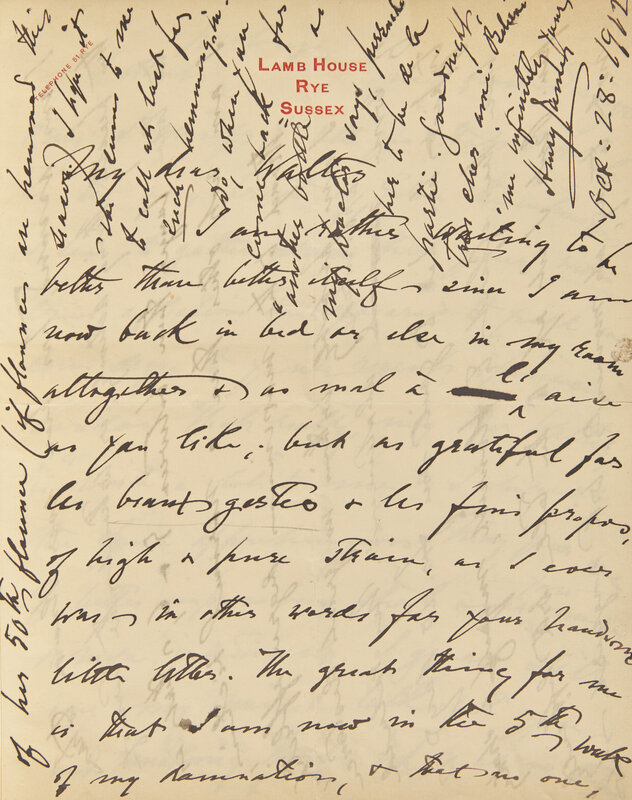 TELEPHONE 51. RYE
LAMB HOUSE
RYE
SUSSEX
Oct: 28: 1912
My dear Walter
I am rather wanting to be
better than better itself, since I am
now back in bed or else in my room
altogether & as mal à l'aise
as you like; but as grateful for
les beaux gestes & les fins propos,
of high & pure strain, as I ever
was — in other words for your handsome
little letter. The great thing for me
is that I am now in the 5th week
of my damnation, & that no one,
of her 50th flounce (if flounces are renewed this
I hope it
comes to me
to call at last for
such
do, when you
come back for
"another bottle" as
my doctor says,
to be de la
partie. Goodnight
cher ami. Believe
me infinitely yours
Henry James